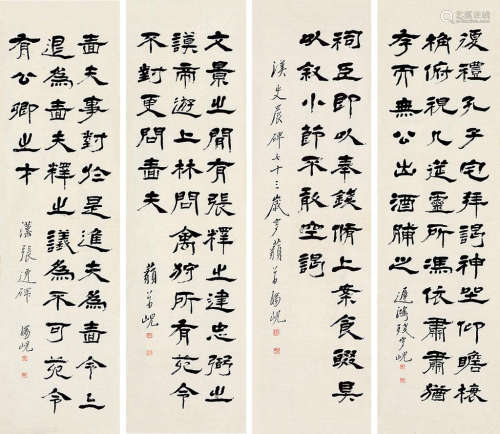 復禮孔子宅拜謁神坐仰瞻榱
桷俯視几筵靈所馮依肅肅猶
存而無公出酒脯之
遲鴻殘叟峴
祠臣即以奉錢脩上案食醊具
以敘小節不敢空謁
漢史晨碑七十三歲叟藐翁楊峴
文景之間有張釋之建忠弼之
謨帝遊上林問禽狩所有苑令
不對更問嗇夫
藐翁峴
嗇夫事對於是進夫為嗇令上
退為嗇夫釋之議為不可苑令
有公卿之才
漢張遷碑 楊峴